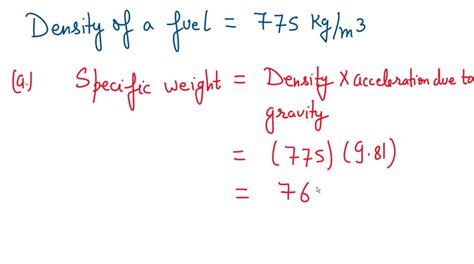 Density of a fuel = 775 Kg/m3
(a.) Specific weight = Density X acceleration due to
gravity
= (775) (9.81)
= 76